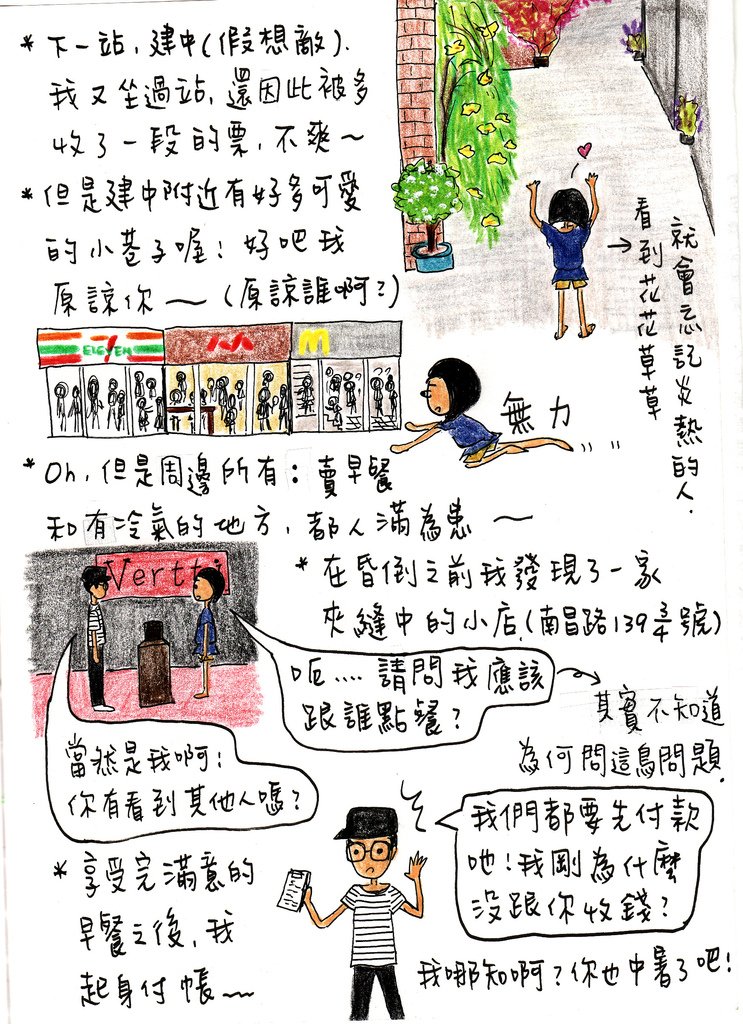 * 下一站，建中(假想敵)．
我又坐過站，還因此被多
收了一段的票，不爽～
* 但是建中附近有好多可愛
的小巷子喔！好吧我
原諒你～（原諒誰啊？）
就會忘記炎熱的人．
→看到花花草草
7
ELEVEN
M
無力
* Oh，但是周邊所有：賣早餐
和有冷氣的地方，都人滿為患～
Vertti
* 在昏倒之前我發現了一家
夾縫中的小店(南昌路139 3/4號)
呃.... 請問我應該
跟誰點餐？
其實不知道
為何問這鳥問題．
當然是我啊！
你有看到其他人嗎？
* 享受完滿意的
早餐之後，我
起身付帳～
我們都要先付款
吔！我剛為什麼
沒跟你收錢？
我哪知啊？你也中暑了吧！